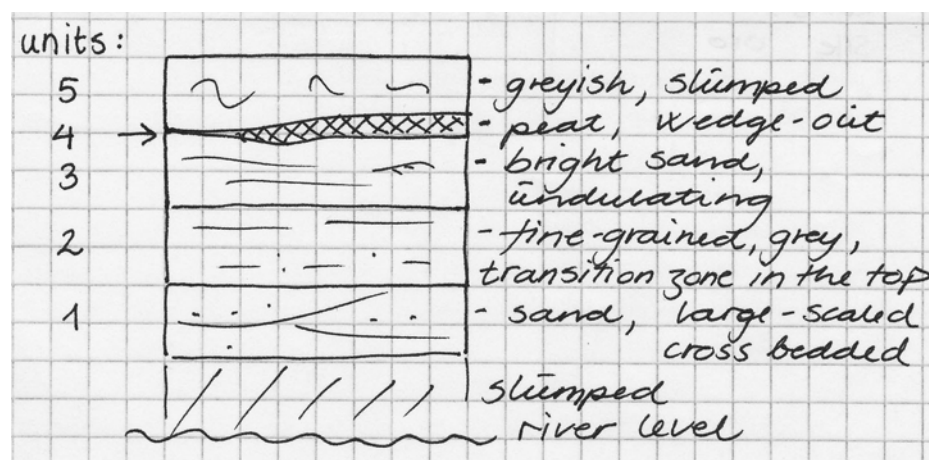 units:
5 - greyish, slumped
4 → - peat, wedge-out
3 - bright sand,
undulating
2 - fine-grained, grey,
transition zone in the top
1 - sand, large-scaled
cross bedded
slumped
river level